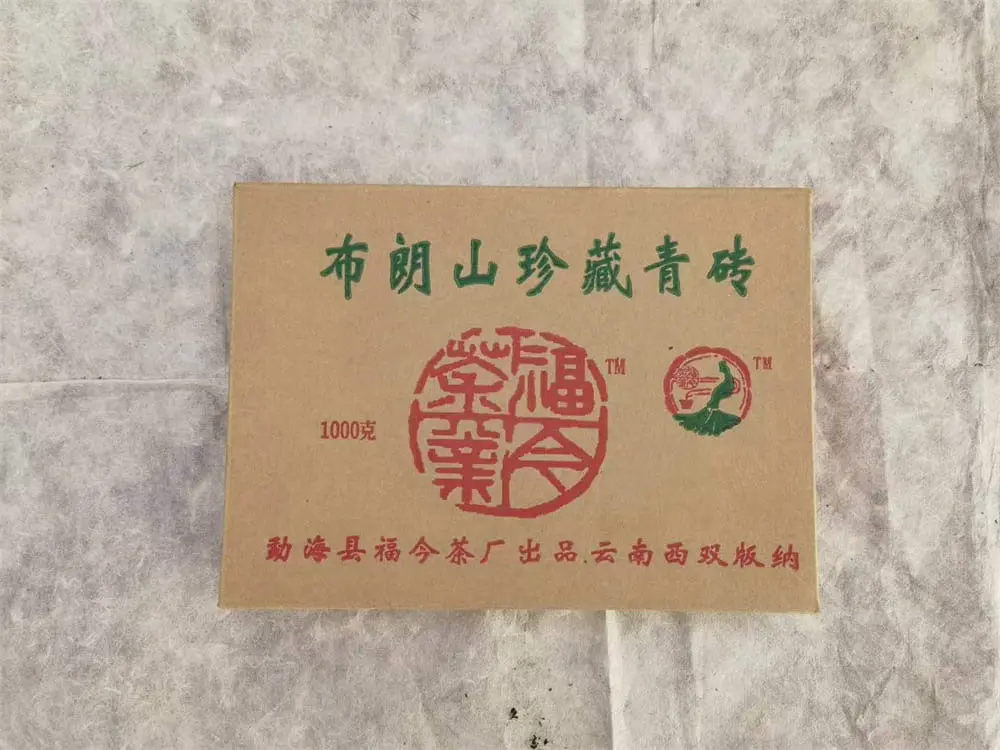 布朗山珍藏青砖
福今茶业
TM
TM
1000克
勐海县福今茶厂出品.云南西双版纳